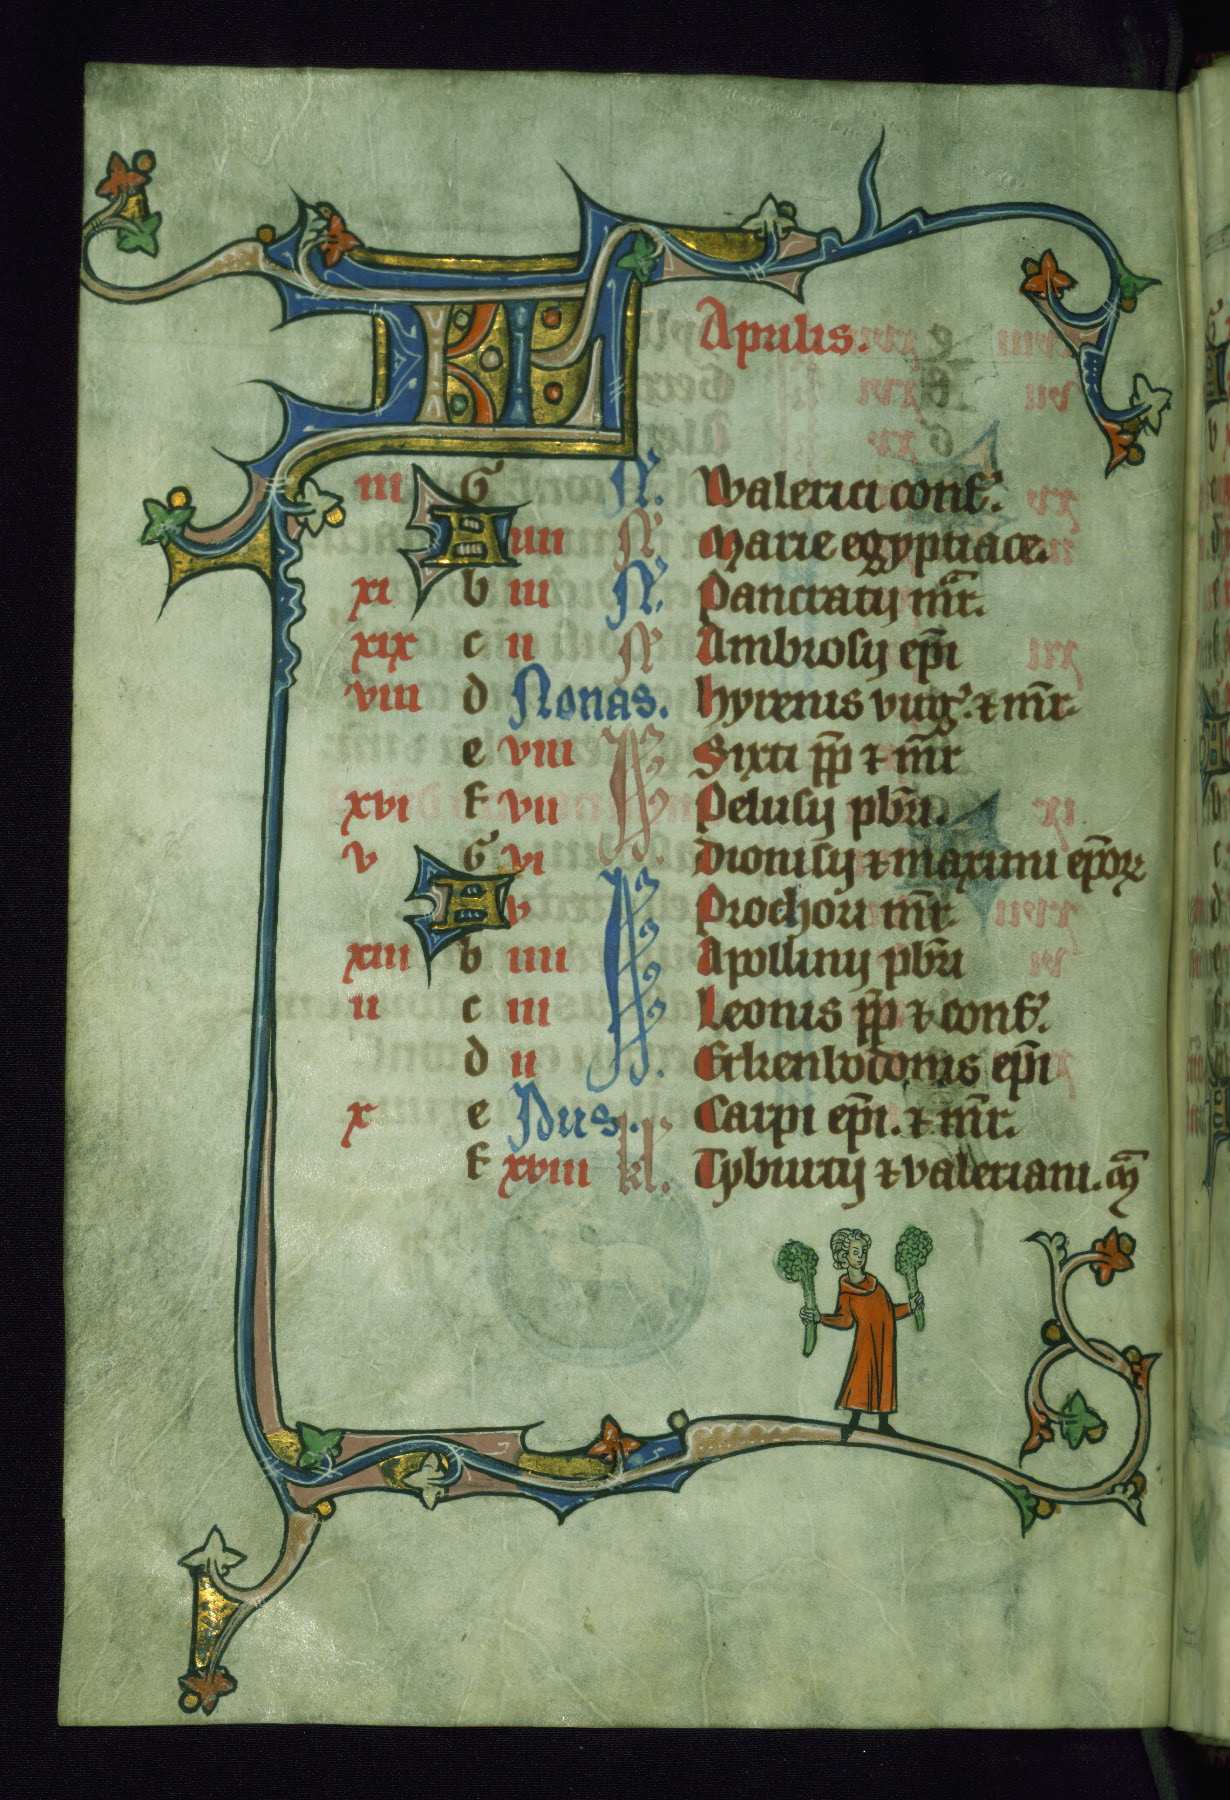 KL Aprilis.
iii G N. Walerici conf.
A iiii N. Marie egyptiace.
xi b iii N. Pancratij mr̄.
xix c ii N. Ambrosij ep̄i
viii d Nonas. hyrenis virg. ⁊ mr̄.
e viii Sixti pp̄ ⁊ mr̄
xvi f vii Pelusij pb̄ri.
v G vi Id. Dionisij ⁊ maximi ep̄orꝝ
A v Prochori mr̄.
xiii b iiii Apollinij pb̄ri
ii c iii Leonis pp̄ ⁊ conf.
d ii Id. Erkenbodonis ep̄i
x e Idus. Carpi ep̄i. ⁊ mr̄.
f xviii kl. Tyburtij ⁊ valeriani. m̄